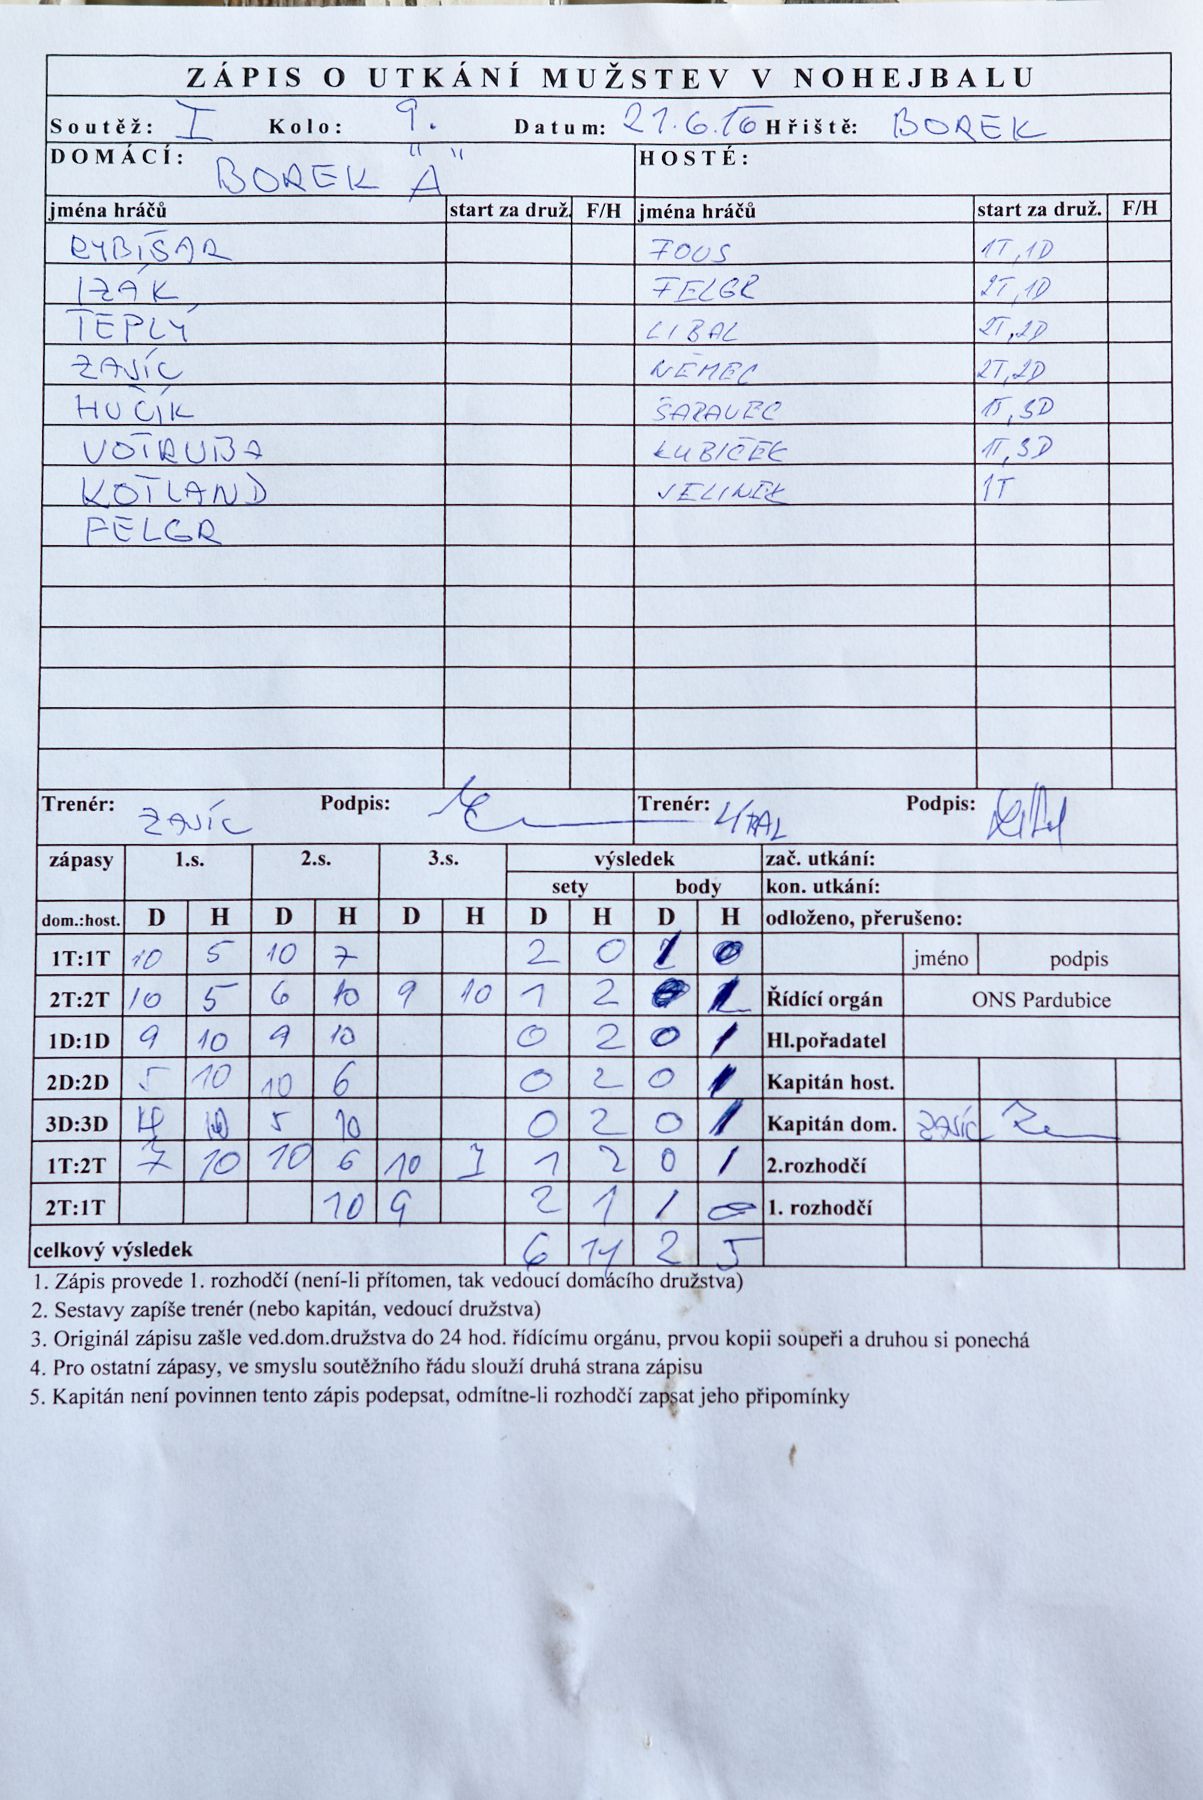 ZÁPIS O UTKÁNÍ MUŽSTEV V NOHEJBALU
Soutěž: I Kolo: 9. Datum: 21.6.16 Hřiště: BOREK
DOMÁCÍ: BOREK "A" HOSTÉ:
jména hráčů start za druž. F/H jména hráčů start za druž. F/H
RYBIŠAR FOUS 1T,1D
IZÁK FELGR 2T,1D
TEPLÝ LIBAL 2T,2D
ZAJÍC NĚMEC 2T,2D
HUČÍK 1T,3D
VOTRUBA KUBIČEK 1T,3D
KOTLAND JELINEK 1T
FELGR
Trenér: ZAJÍC Podpis: Trenér: Podpis:
zápasy 1.s. 2.s. 3.s. výsledek zač. utkání:
sety body kon. utkání:
dom.:host. D H D H D H D H D H odloženo, přerušeno:
1T:1T 10 5 10 7 2 0 1 0 jméno podpis
2T:2T 10 5 6 10 9 10 1 2 0 1 Řídící orgán ONS Pardubice
1D:1D 9 10 9 10 0 2 0 1 Hl.pořadatel
2D:2D 5 10 10 6 0 2 0 1 Kapitán host.
3D:3D 10 5 10 0 2 0 1 Kapitán dom. ZAJÍC
1T:2T 7 10 10 6 10 7 1 2 0 1 2.rozhodčí
2T:1T 10 9 2 1 1 0 1. rozhodčí
celkový výsledek 6 11 2 5
1. Zápis provede 1. rozhodčí (není-li přítomen, tak vedoucí domácího družstva)
2. Sestavy zapíše trenér (nebo kapitán, vedoucí družstva)
3. Originál zápisu zašle ved.dom.družstva do 24 hod. řídícímu orgánu, prvou kopii soupeři a druhou si ponechá
4. Pro ostatní zápasy, ve smyslu soutěžního řádu slouží druhá strana zápisu
5. Kapitán není povinnen tento zápis podepsat, odmítne-li rozhodčí zapsat jeho připomínky